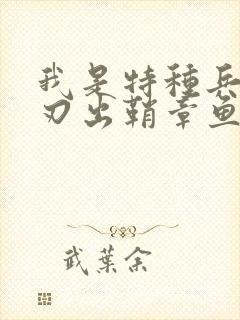 我是特種兵
刃出鞘章鱼
武葉余